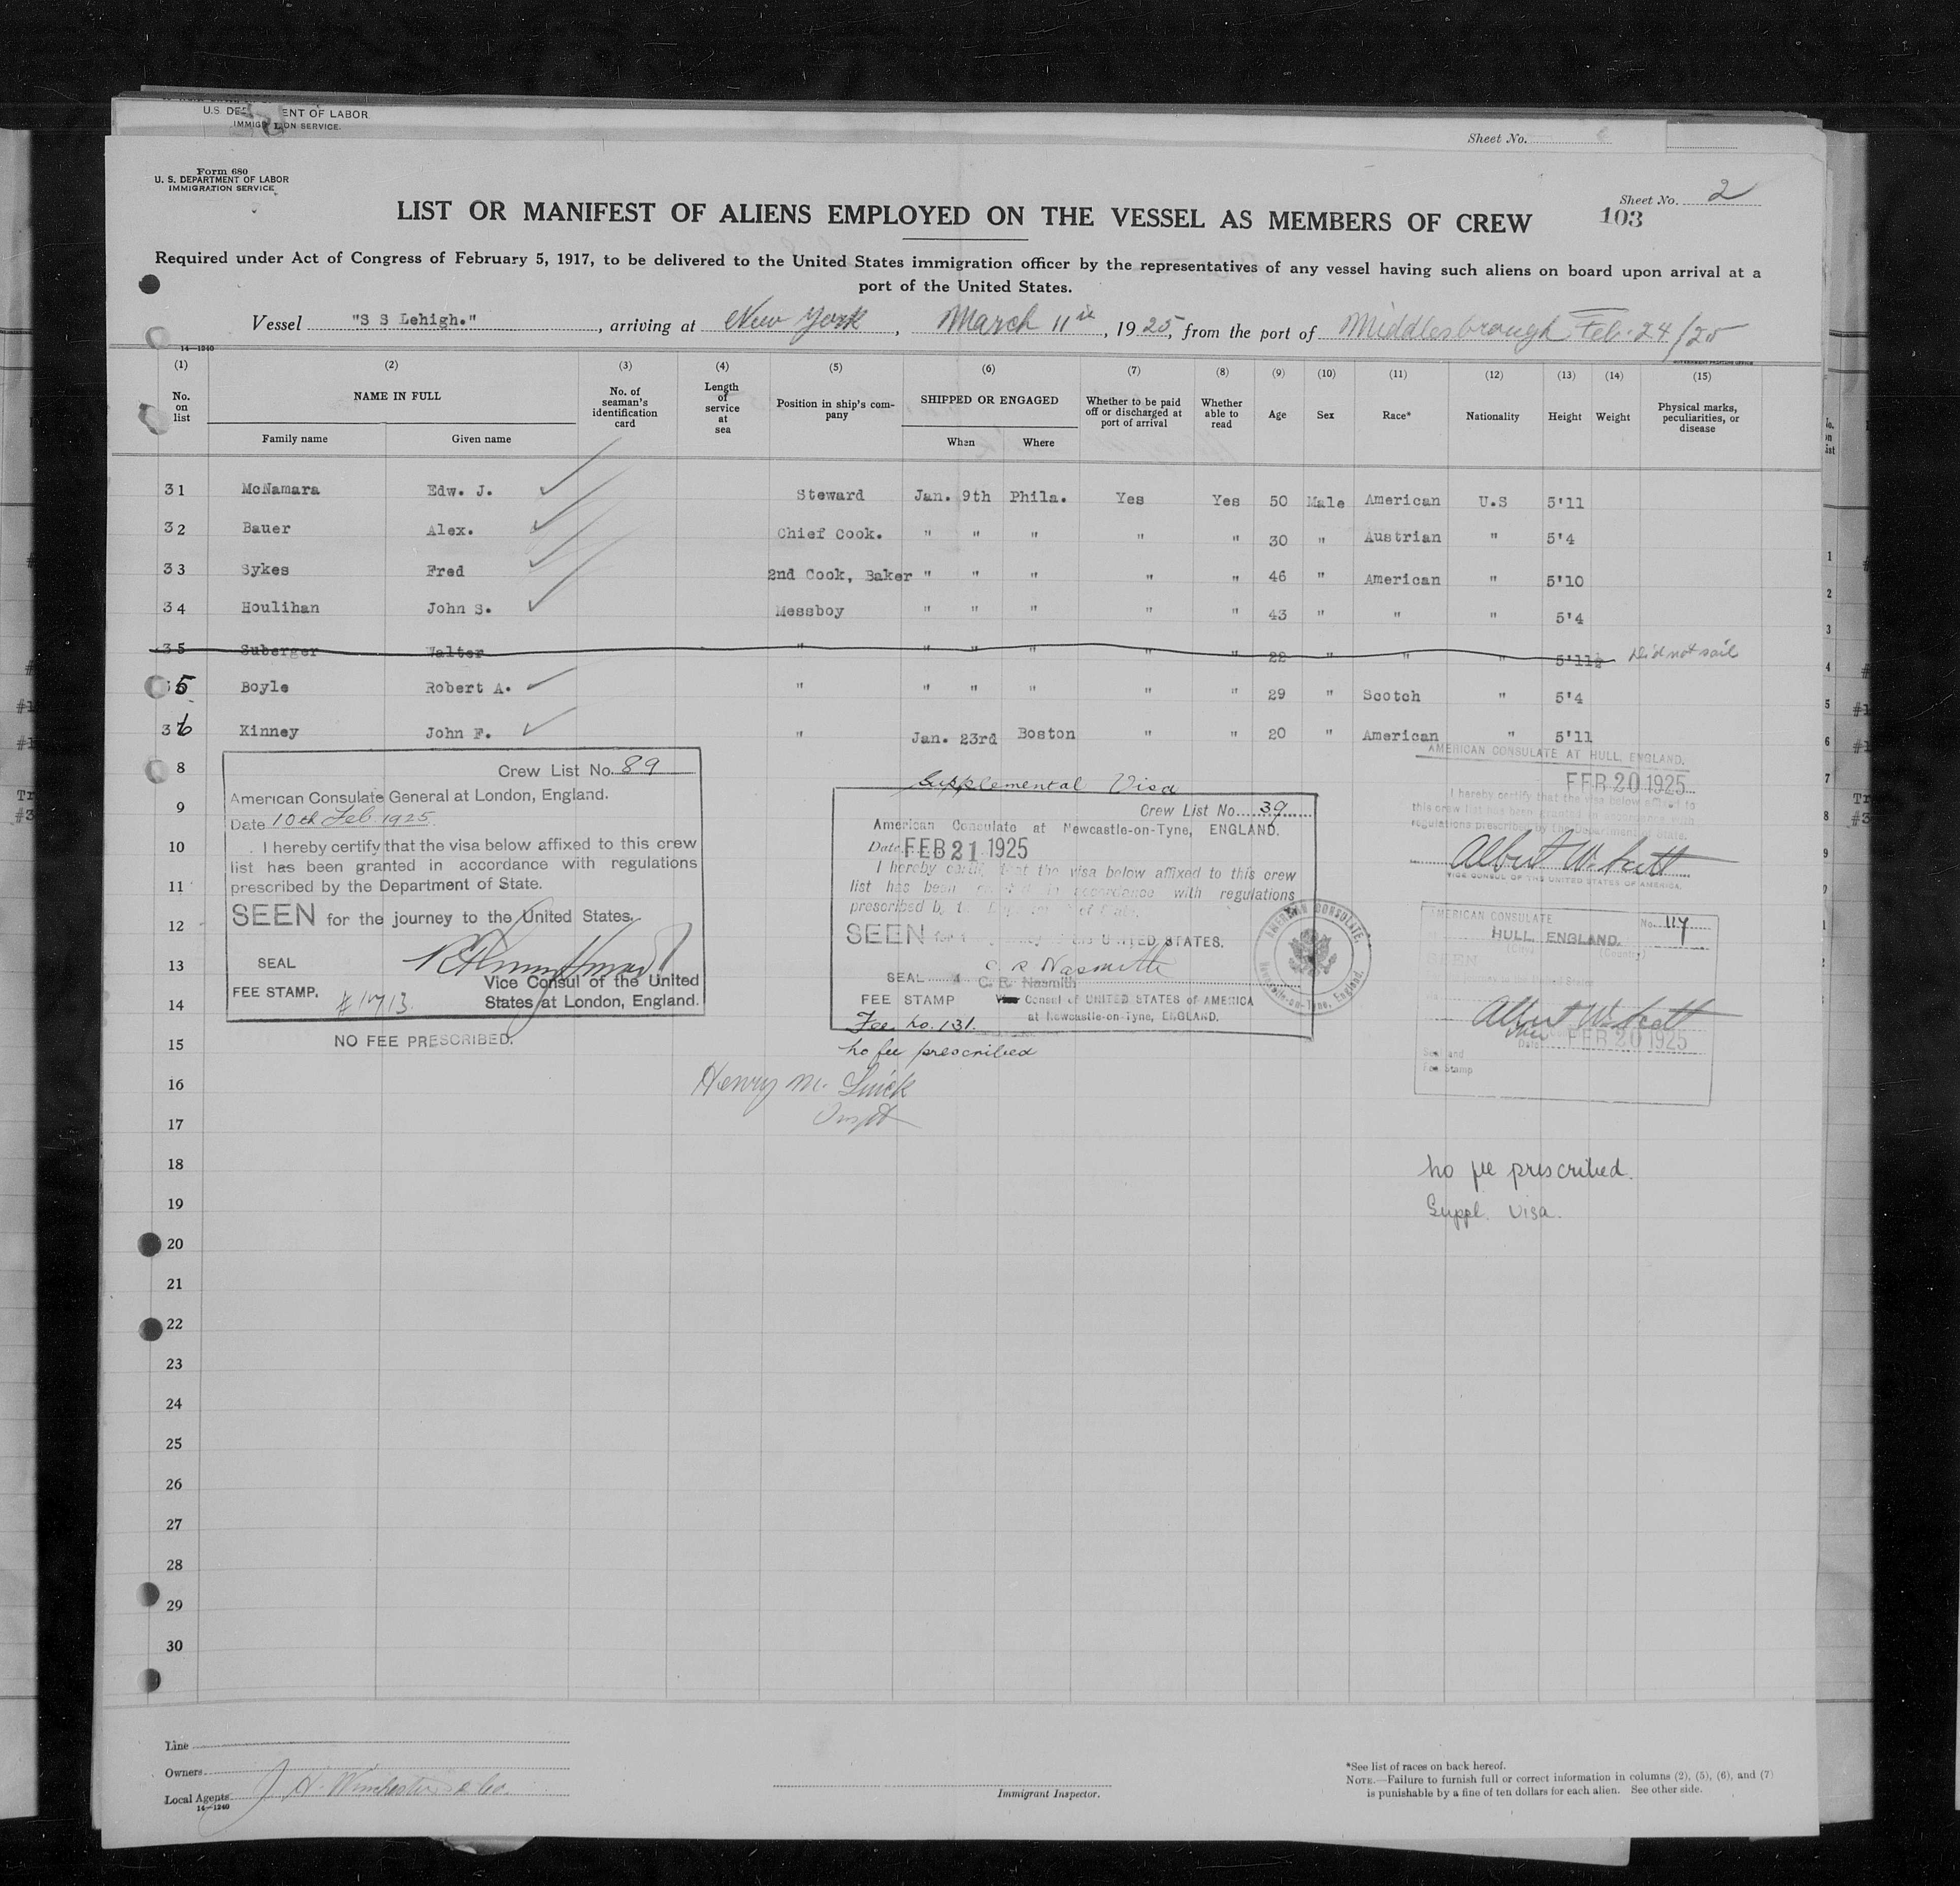 U.S. DE ENT OF LABOR
IMMIGR ION SERVICE.
Sheet No.
Form 680
U. S. DEPARTMENT OF LABOR
IMMIGRATION SERVICE
Sheet No. 2
103
LIST OR MANIFEST OF ALIENS EMPLOYED ON THE VESSEL AS MEMBERS OF CREW
Required under Act of Congress of February 5, 1917, to be delivered to the United States immigration officer by the representatives of any vessel having such aliens on board upon arrival at a
port of the United States.
Vessel "S S Lehigh." , arriving at New York , March 11th , 1925, from the port of Middlesbrough Feb. 24/25
14—1240
(1) (2) (3) (4) (5) (6) (7) (8) (9) (10) (11) (12) (13) (14) (15)
No. on list NAME IN FULL No. of seaman's identification card Length of service at sea Position in ship's company SHIPPED OR ENGAGED Whether to be paid off or discharged at port of arrival Whether able to read Age Sex Race* Nationality Height Weight Physical marks, peculiarities, or disease
Family name Given name When Where
31 McNamara Edw. J. Steward Jan. 9th Phila. Yes Yes 50 Male American U.S 5'11
32 Bauer Alex. Chief Cook. " " " " " 30 " Austrian " 5'4
33 Sykes Fred 2nd Cook, Baker " " " " " 46 " American " 5'10
34 Houlihan John S. Messboy " " " " " 43 " " " 5'4
35 Suberger Walter " " " " " " 22 " " " 5'11½ Did not sail
5 Boyle Robert A. " " " " " " 29 " Scotch " 5'4
36 Kinney John F. " Jan. 23rd Boston " " 20 " American " 5'11
8
9
10
11
12
13
14
15
16
17
18
19
20
21
22
23
24
25
26
27
28
29
30
Crew List No. 89
American Consulate General at London, England.
Date 10th Feb. 1925.
I hereby certify that the visa below affixed to this crew
list has been granted in accordance with regulations
prescribed by the Department of State.
SEEN for the journey to the United States.
SEAL
Vice Consul of the United
FEE STAMP. #1713.
States at London, England.
NO FEE PRESCRIBED.
Supplemental Visa
Crew List No. 39
American Consulate at Newcastle-on-Tyne, ENGLAND.
Date FEB 21 1925
I hereby certify that the visa below affixed to this crew
list has been granted in accordance with regulations
prescribed by the Department of State.
SEEN for the journey to the UNITED STATES.
C R Nasmith
SEAL C. R. Nasmith
FEE STAMP Vice Consul of UNITED STATES of AMERICA
at Newcastle-on-Tyne, ENGLAND.
Fee No. 131.
No fee prescribed
AMERICAN CONSULATE.
Newcastle-on-Tyne, England.
Henry M.
Inspt
AMERICAN CONSULATE AT HULL, ENGLAND.
FEB 20 1925
I hereby certify that the visa below affixed to
this crew list has been granted in accordance with
regulations prescribed by the Department of State.
Albert W. Scott
VICE CONSUL OF THE UNITED STATES OF AMERICA.
AMERICAN CONSULATE No. 117
HULL, ENGLAND.
(City) (Country)
SEEN
Albert W. Scott
Date FEB 20 1925
Seal and
Fee Stamp
No fee prescribed.
Suppl. Visa.
Line
Owners
Local Agents J. H. Winchester & Co.
14—1240
Immigrant Inspector.
*See list of races on back hereof.
NOTE.—Failure to furnish full or correct information in columns (2), (5), (6), and (7)
is punishable by a fine of ten dollars for each alien. See other side.